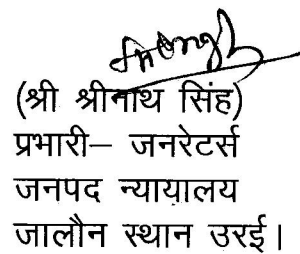 (श्री श्रीनाथ सिंह)
प्रभारी– जनरेटर्स
जनपद न्यायालय
जालौन स्थान उरई।